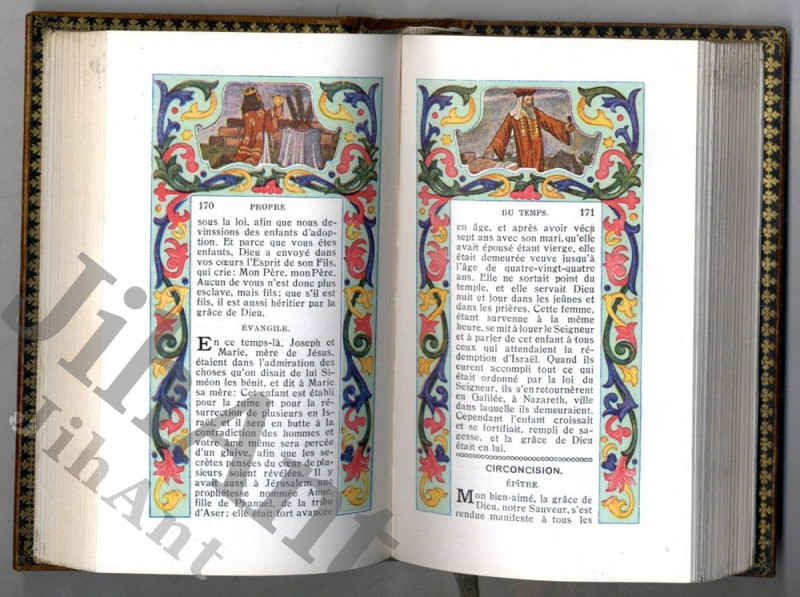 170 PROPRE
sous la loi, afin que nous de-
vinssions des enfants d'adop-
tion. Et parce que vous êtes
enfants, Dieu a envoyé dans
vos cœurs l'Esprit de son Fils,
qui crie: Mon Père, mon Père.
Aucun de vous n'est donc plus
esclave, mais fils; que s'il est
fils, il est aussi héritier par la
grâce de Dieu.
ÉVANGILE.
En ce temps-là, Joseph et
Marie, mère de Jésus,
étaient dans l'admiration des
choses qu'on disait de lui Si-
méon les bénit, et dit à Marie
sa mère: Cet enfant est établi
pour la ruine et pour la ré-
surrection de plusieurs en Is-
raël, et il sera en butte à la
contradiction des hommes et
votre âme même sera percée
d'un glaive, afin que les se-
crètes pensées du cœur de plu-
sieurs soient révélées. Il y
avait aussi à Jérusalem une
prophétesse nommée Anne,
fille de Phanuel, de la tribu
d'Aser; elle était fort avancée
DU TEMPS. 171
en âge, et après avoir vécu
sept ans avec son mari, qu'elle
avait épousé étant vierge, elle
était demeurée veuve jusqu'à
l'âge de quatre-vingt-quatre
ans. Elle ne sortait point du
temple, et elle servait Dieu
nuit et jour dans les jeûnes et
dans les prières. Cette femme,
étant survenue à la même
heure, se mit à louer le Seigneur
et à parler de cet enfant à tous
ceux qui attendaient la ré-
demption d'Israël. Quand ils
eurent accompli tout ce qui
était ordonné par la loi du
Seigneur, ils s'en retournèrent
en Galilée, à Nazareth, ville
dans laquelle ils demeuraient.
Cependant l'enfant croissait
et se fortifiait, rempli de sa-
gesse, et la grâce de Dieu
était en lui.
CIRCONCISION.
ÉPÎTRE.
Mon bien-aimé, la grâce de
Dieu, notre Sauveur, s'est
rendue manifeste à tous les
JihAnt
JihAnt